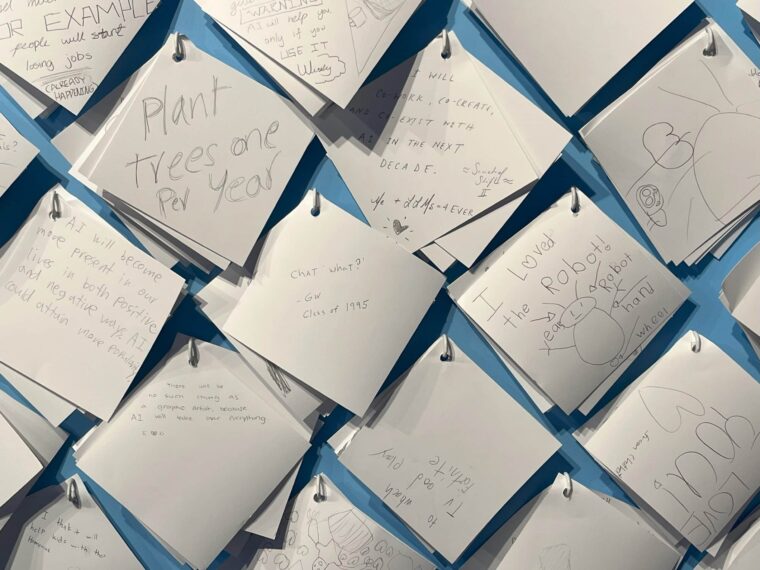 OR EXAMPLE
people will start
losing jobs
(ALREADY
HAPPENING)
WARNING
AI will help you
only if you
USE IT
Wisely
Plant
trees one
Per Year
I WILL
CO-WORK, CO-CREATE,
AND CO-EXIST WITH
AI IN THE NEXT
DECADE.
Me + ddMs = 4EVER
AI will become
more present in our
lives in both positive
and negative ways. AI
could attain more
CHAT 'What?'
- GW
Class of 1995
I LOVED
the Robot!
years
Robot
hand
wheel
there will be
no such thing as
a graphic artist because
AI will take over everything
to watch
TV and play
fortnite
LOVE
YOU!
from
I think it will
help kids with their
homework